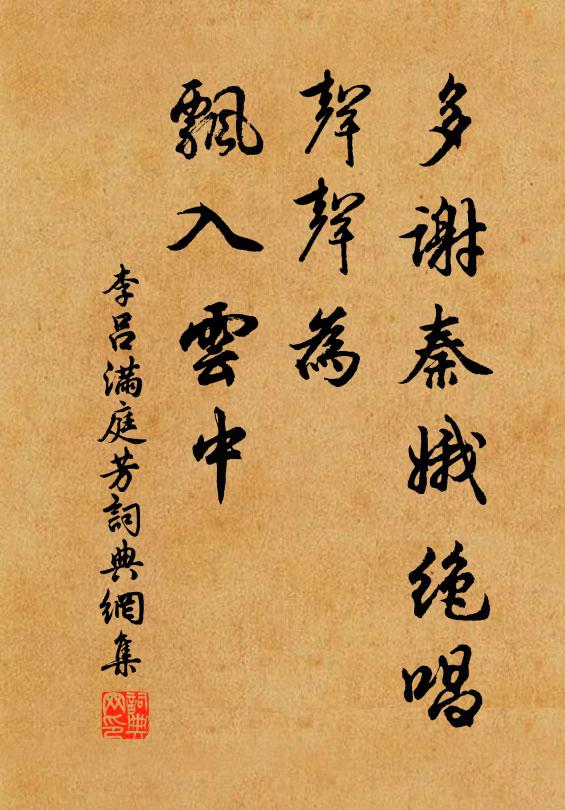 多謝秦娥絶唱
聲聲為
飄入雲中
李呂滿庭芳詞典網集
詞典
网印